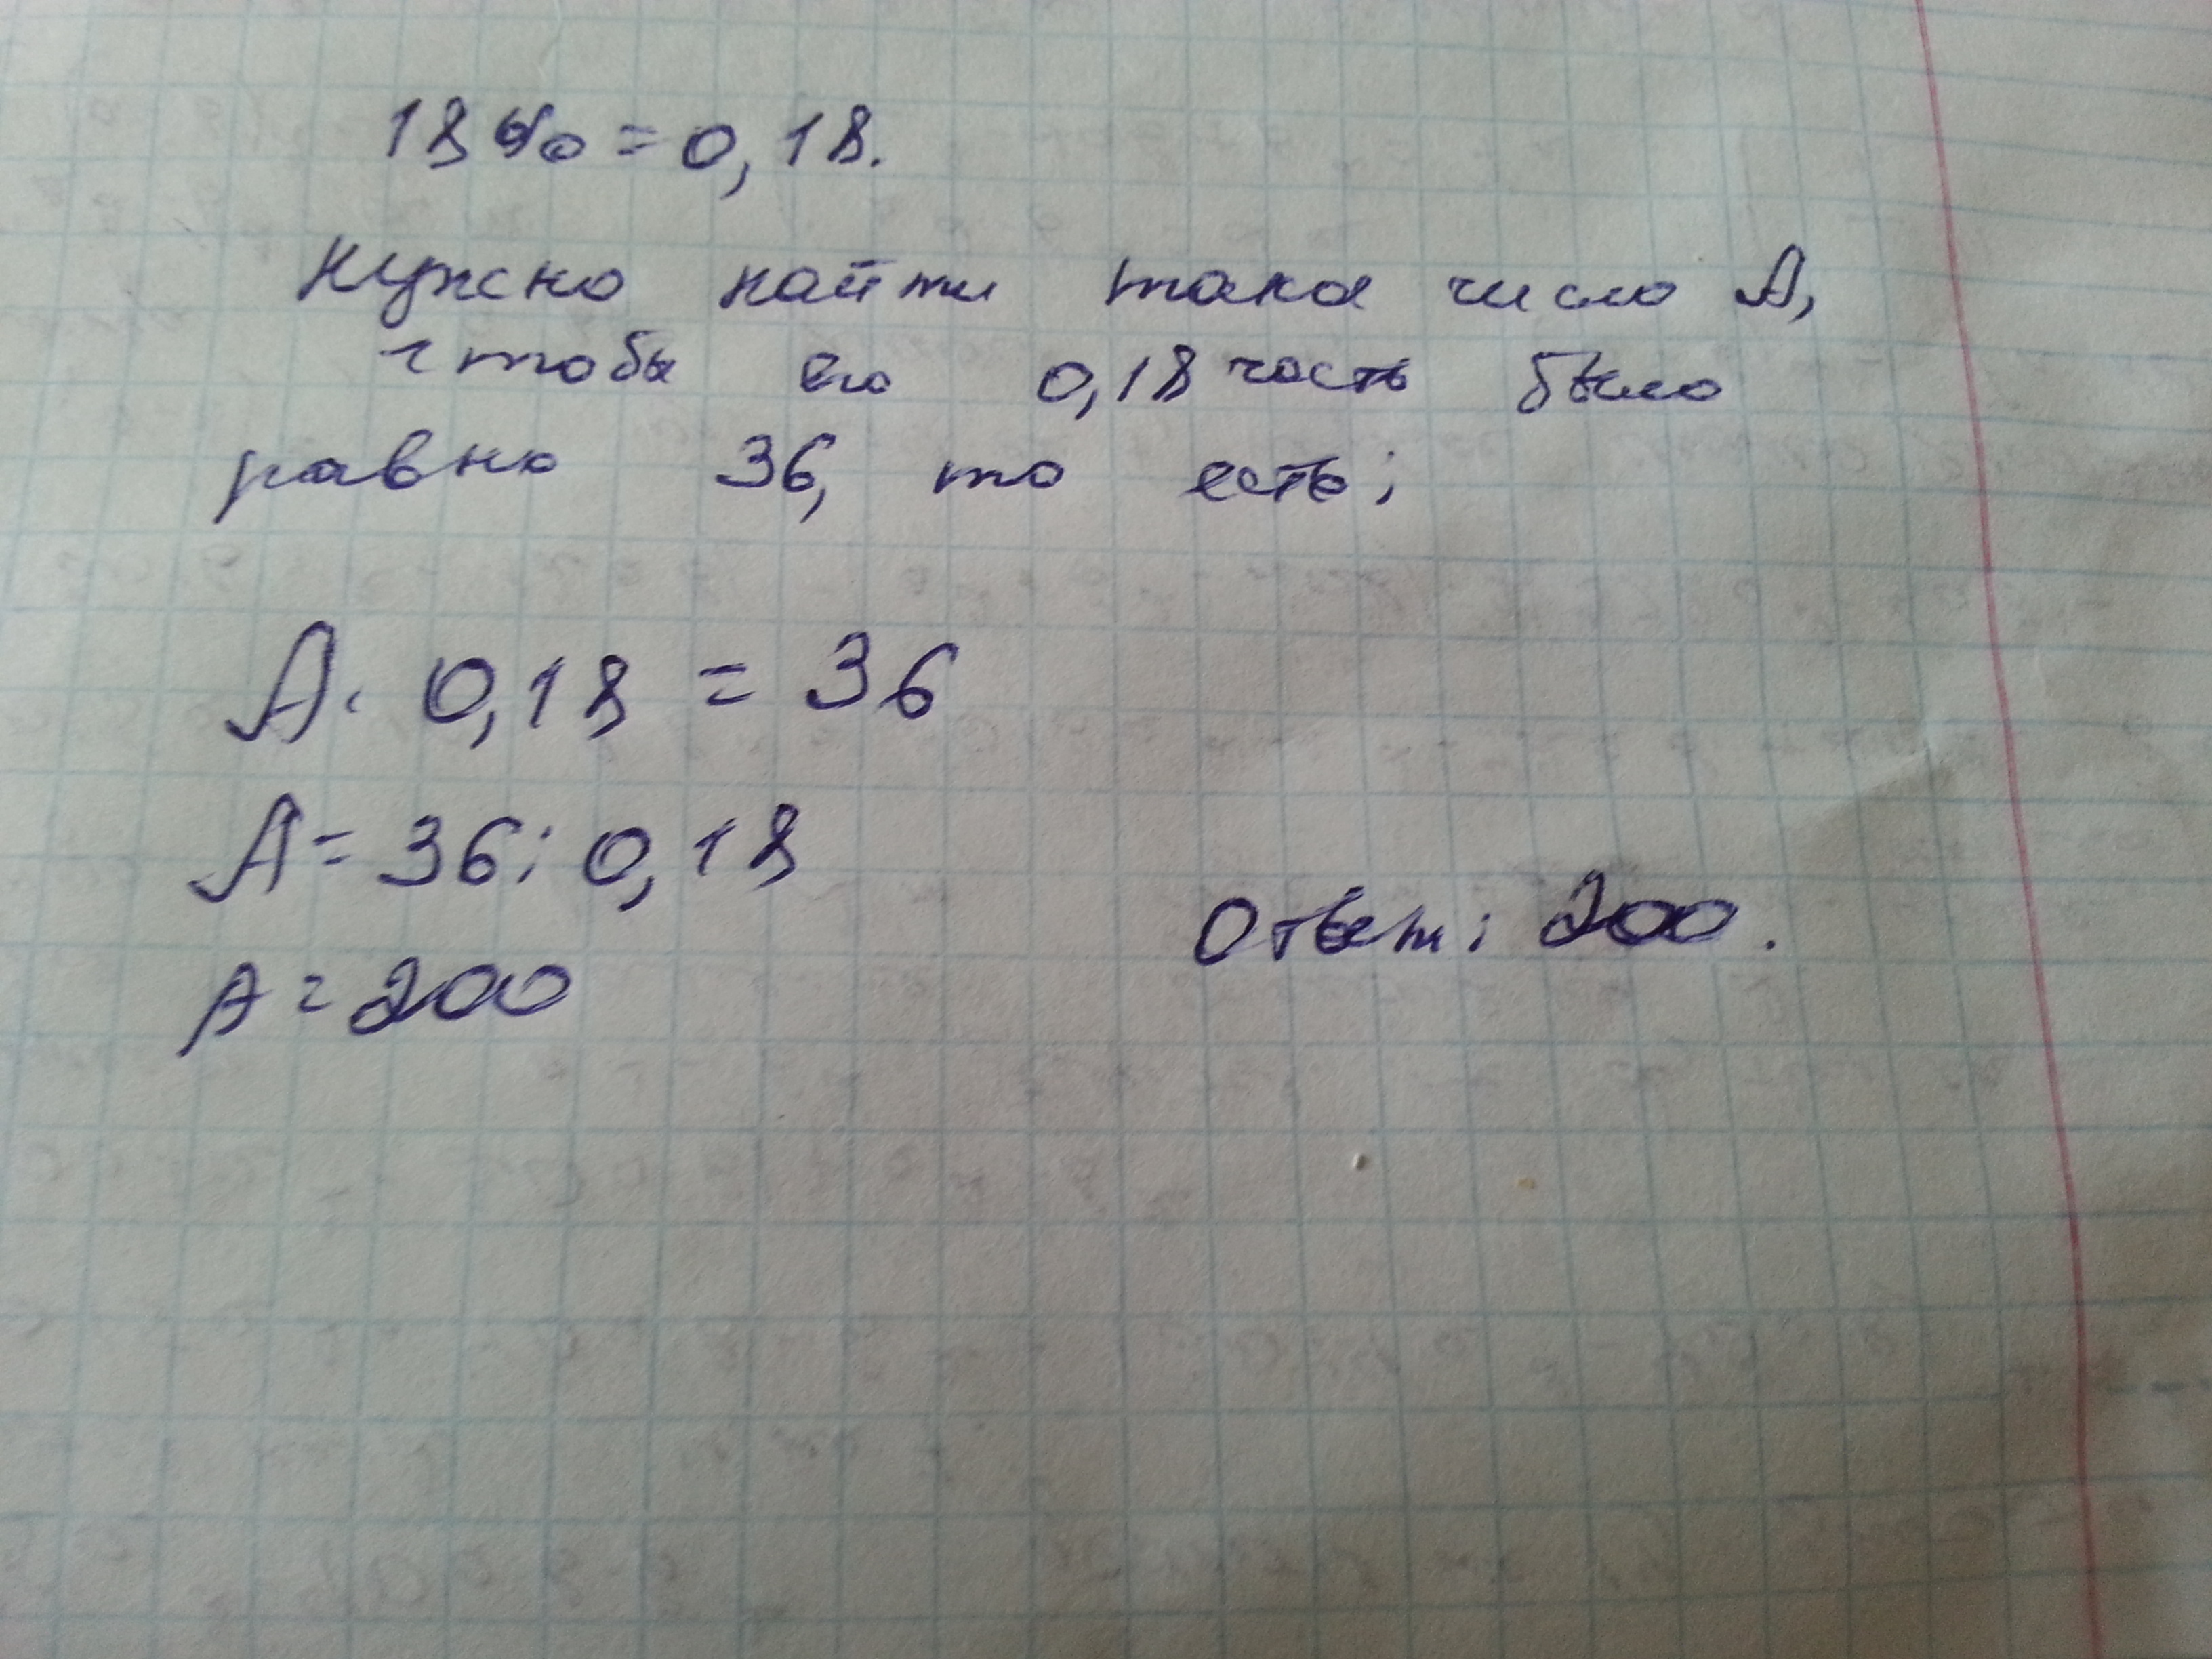 18% = 0,18.
Нужно найти така число А,
чтобы его 0,18 часть было
равно 36, то есть;
А · 0,18 = 36
А = 36 : 0,18
А = 200
Ответ: 200.